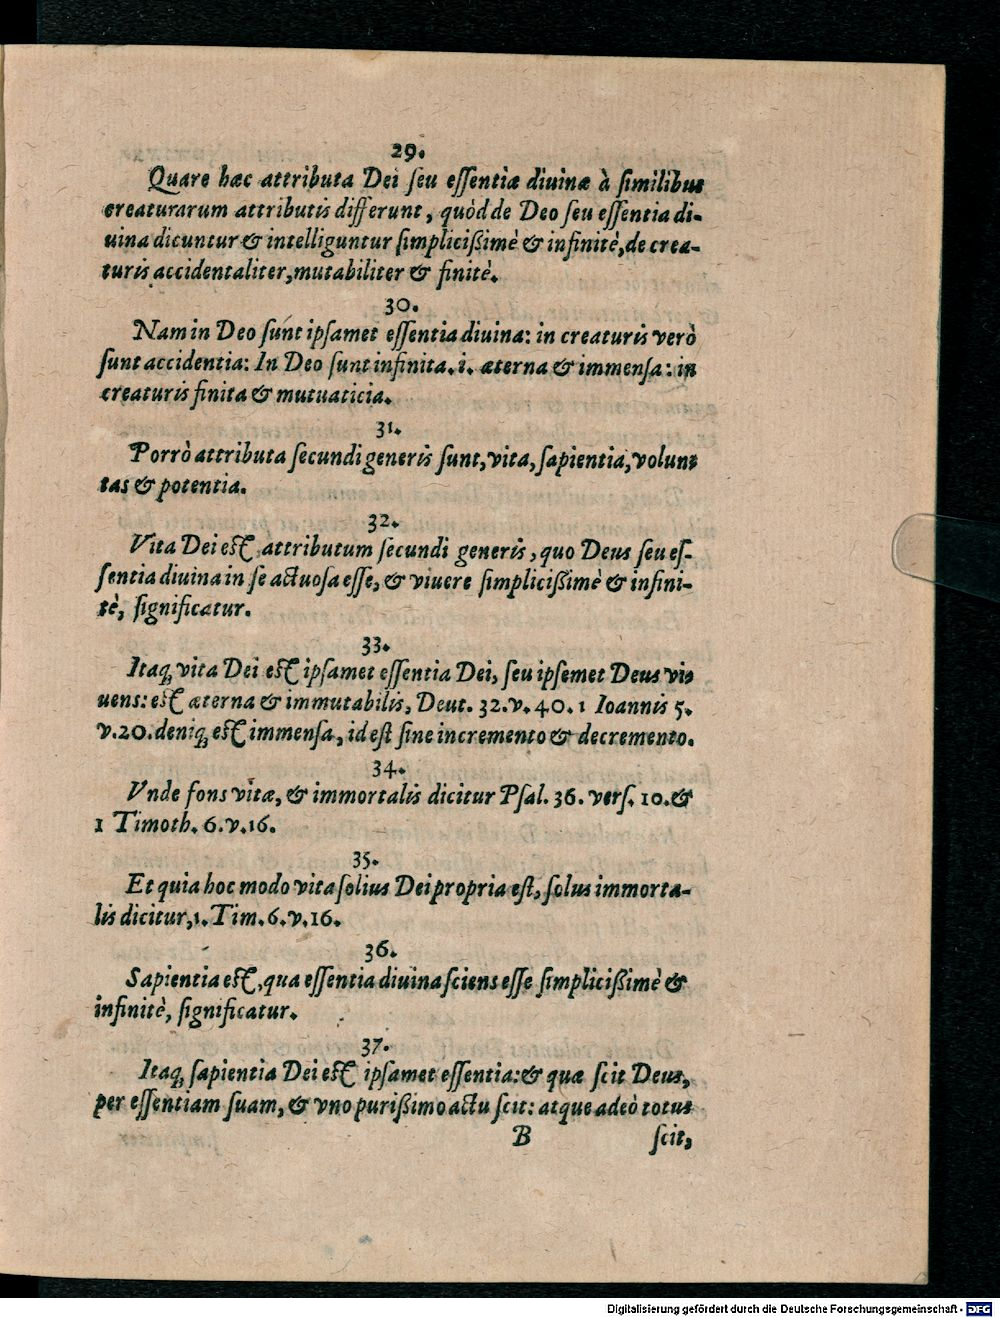 29.
Quare hæc attributa Dei seu essentiæ diuinæ à similibus
creaturarum attributis differunt, quòd de Deo seu essentia di-
uina dicuntur & intelliguntur simplicißimè & infinitè, de crea-
turis accidentaliter, mutabiliter & finitè.
30.
Nam in Deo sunt ipsamet essentia diuina: in creaturis verò
sunt accidentia: In Deo sunt infinita. i. æterna & immensa: in
creaturis finita & mutuaticia.
31.
Porrò attributa secundi generis sunt, vita, sapientia, volun-
tas & potentia.
32.
Vita Dei est, attributum secundi generis, quo Deus seu es-
sentia diuina in se actuosa esse, & viuere simplicißimè & infini-
tè, significatur.
33.
Itaq; vita Dei est ipsamet essentia Dei, seu ipsemet Deus vi-
uens: est æterna & immutabilis, Deut. 32. v. 40. 1 Ioannis 5.
v. 20. deniq; est immensa, id est sine incremento & decremento.
34.
Vnde fons vitæ, & immortalis dicitur Psal. 36. vers. 10. &
1 Timoth. 6. v. 16.
35.
Et quia hoc modo vita solius Dei propria est, solus immorta-
lis dicitur, 1. Tim. 6. v. 16.
36.
Sapientia est, qua essentia diuina sciens esse simplicißimè &
infinitè, significatur.
37.
Itaq; sapientia Dei est ipsamet essentia: & quæ scit Deus,
per essentiam suam, & vno purißimo actu scit: atque adeò totus
B scit,
Digitalisierung gefördert durch die Deutsche Forschungsgemeinschaft - DFG